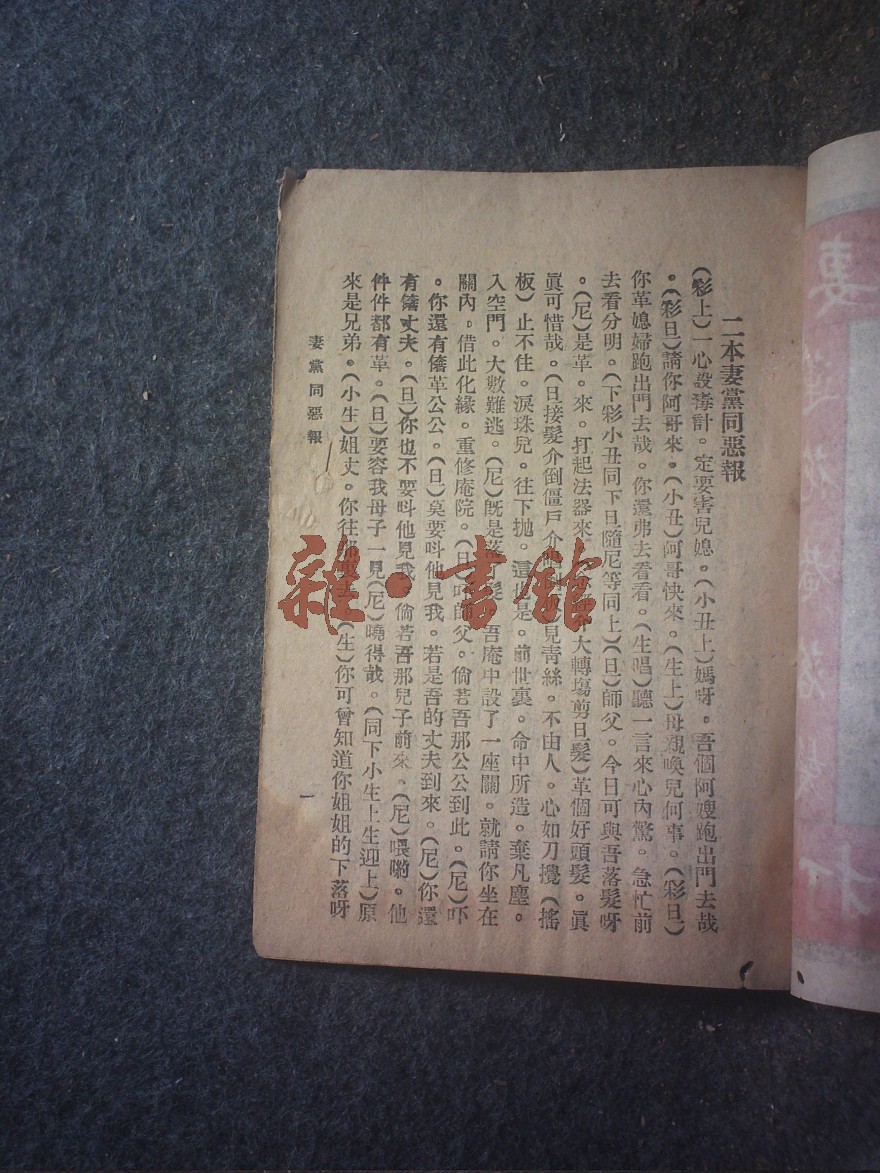 二本妻黨同惡報
(彩上)一心設毒計。定要害兒媳。(小丑上)媽呀。吾個阿嫂跑出門去哉
。(彩旦)請你阿哥來。(小丑)阿哥快來。(生上)母親喚兒何事。(彩旦)
你革媳婦跑出門去哉。你還弗去看看。(生唱)聽一言來心內驚。急忙前
去看分明。(下彩小丑同下旦隨尼等同上)(旦)師父。今日可與吾落髮呀
。(尼)是革。來。打起法器來大轉塲剪旦髮)革個好頭髮。眞
眞可惜哉。(旦接髮介倒僵尸介見青絲。不由人。心如刀攪(搖
板)止不住。淚珠兒。往下抛。這也是。前世裏。命中所造。棄凡塵。
入空門。大數難逃。(尼)旣是落了髮。吾庵中設了一座關。就請你坐在
關內。借此化緣。重修庵院。(旦)師父。倘若吾那公公到此。(尼)吓
。你還有僐革公公。(旦)莫要呌他見我。若是吾的丈夫到來。(尼)你還
有僐丈夫。(旦)你也不要呌他見我。倘若吾那兒子前來。(尼)喂喲。他
件件都有革。(旦)要容我母子一見(尼)曉得哉。(同下小生上生迎上)原
來是兄弟。(小生)姐丈。你往那(生)你可曾知道你姐姐的下落呀
妻黨同惡報
一
雜·書館
妻